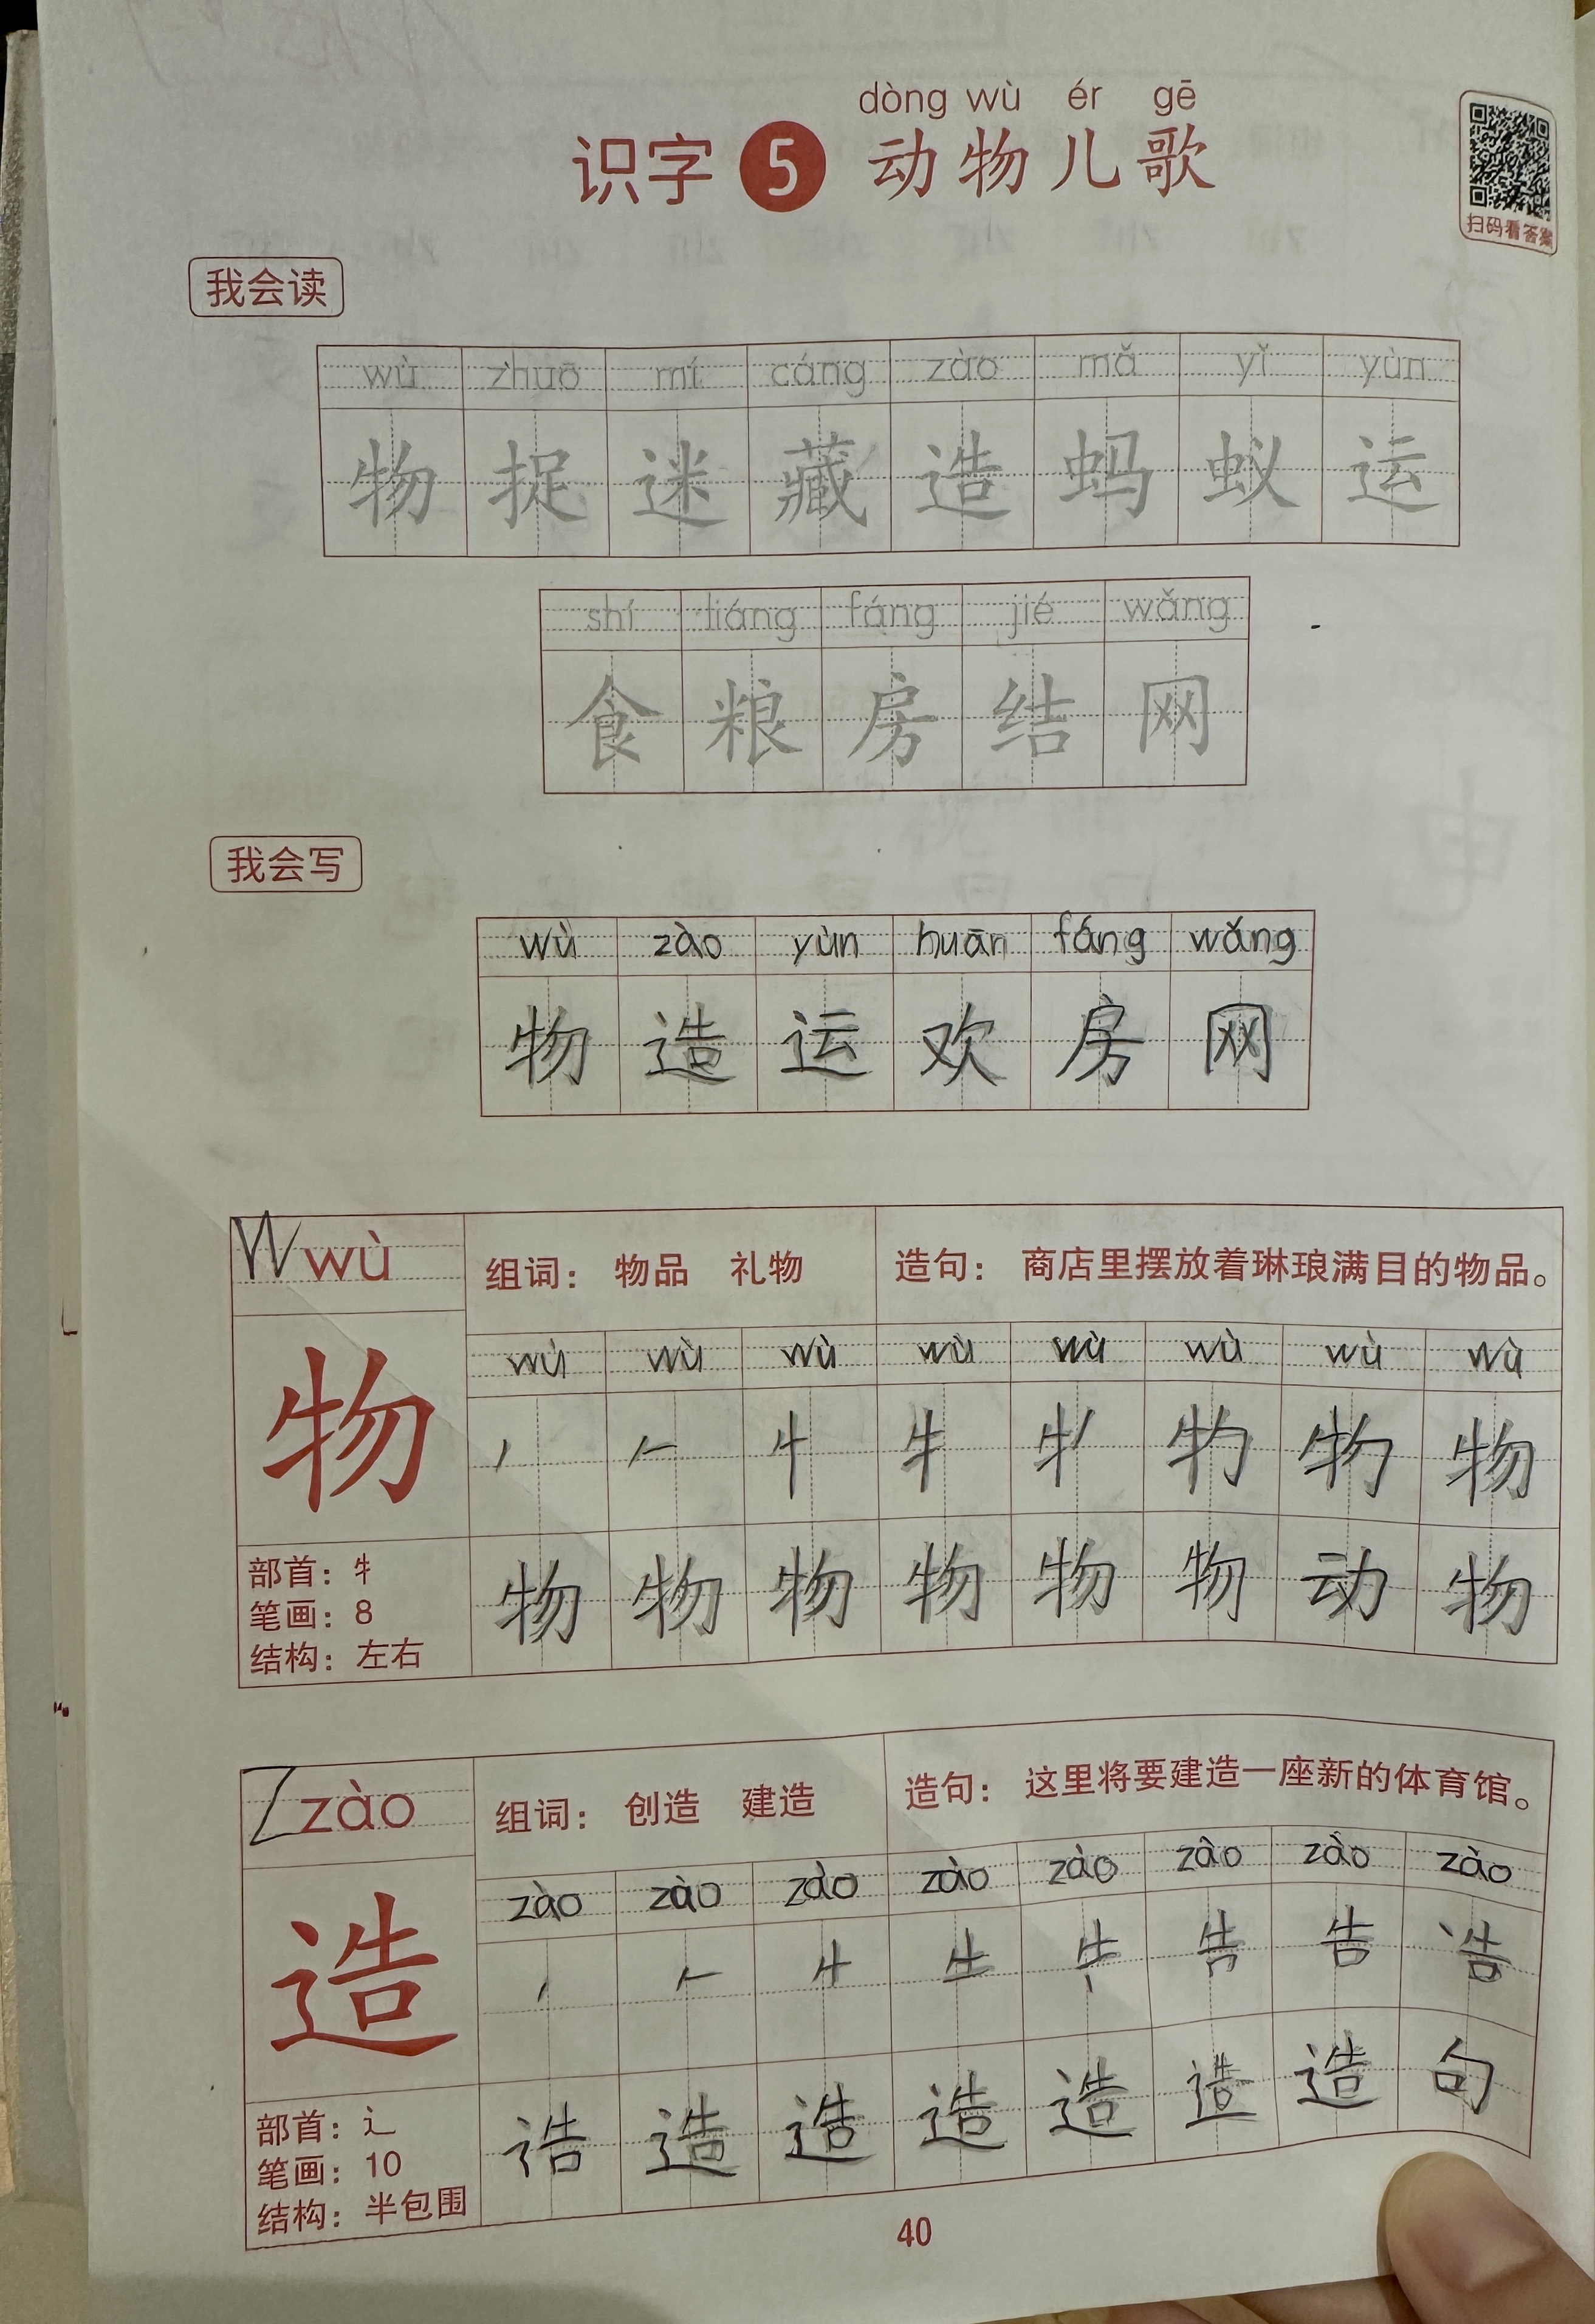 dòng wù ér gē
识字 5 动物儿歌
扫码看答案
我会读
wù zhuō mí cáng zào mǎ yǐ yùn
物 捉 迷 藏 造 蚂 蚁 运
shí liáng fáng jié wǎng
食 粮 房 结 网
我会写
wù zào yùn huān fáng wǎng
物 造 运 欢 房 网
W wù
组词： 物品 礼物 造句： 商店里摆放着琳琅满目的物品。
wù wù wù wù wù wù wù wù
物
物
部首：牜
笔画：8
结构：左右
物 物 物 物 物 物 动 物
Z zào
组词： 创造 建造 造句： 这里将要建造一座新的体育馆。
zào zào zào zào zào zào zào zào
造
告
部首：辶
笔画：10
结构：半包围
造 造 造 造 造 造 句
40